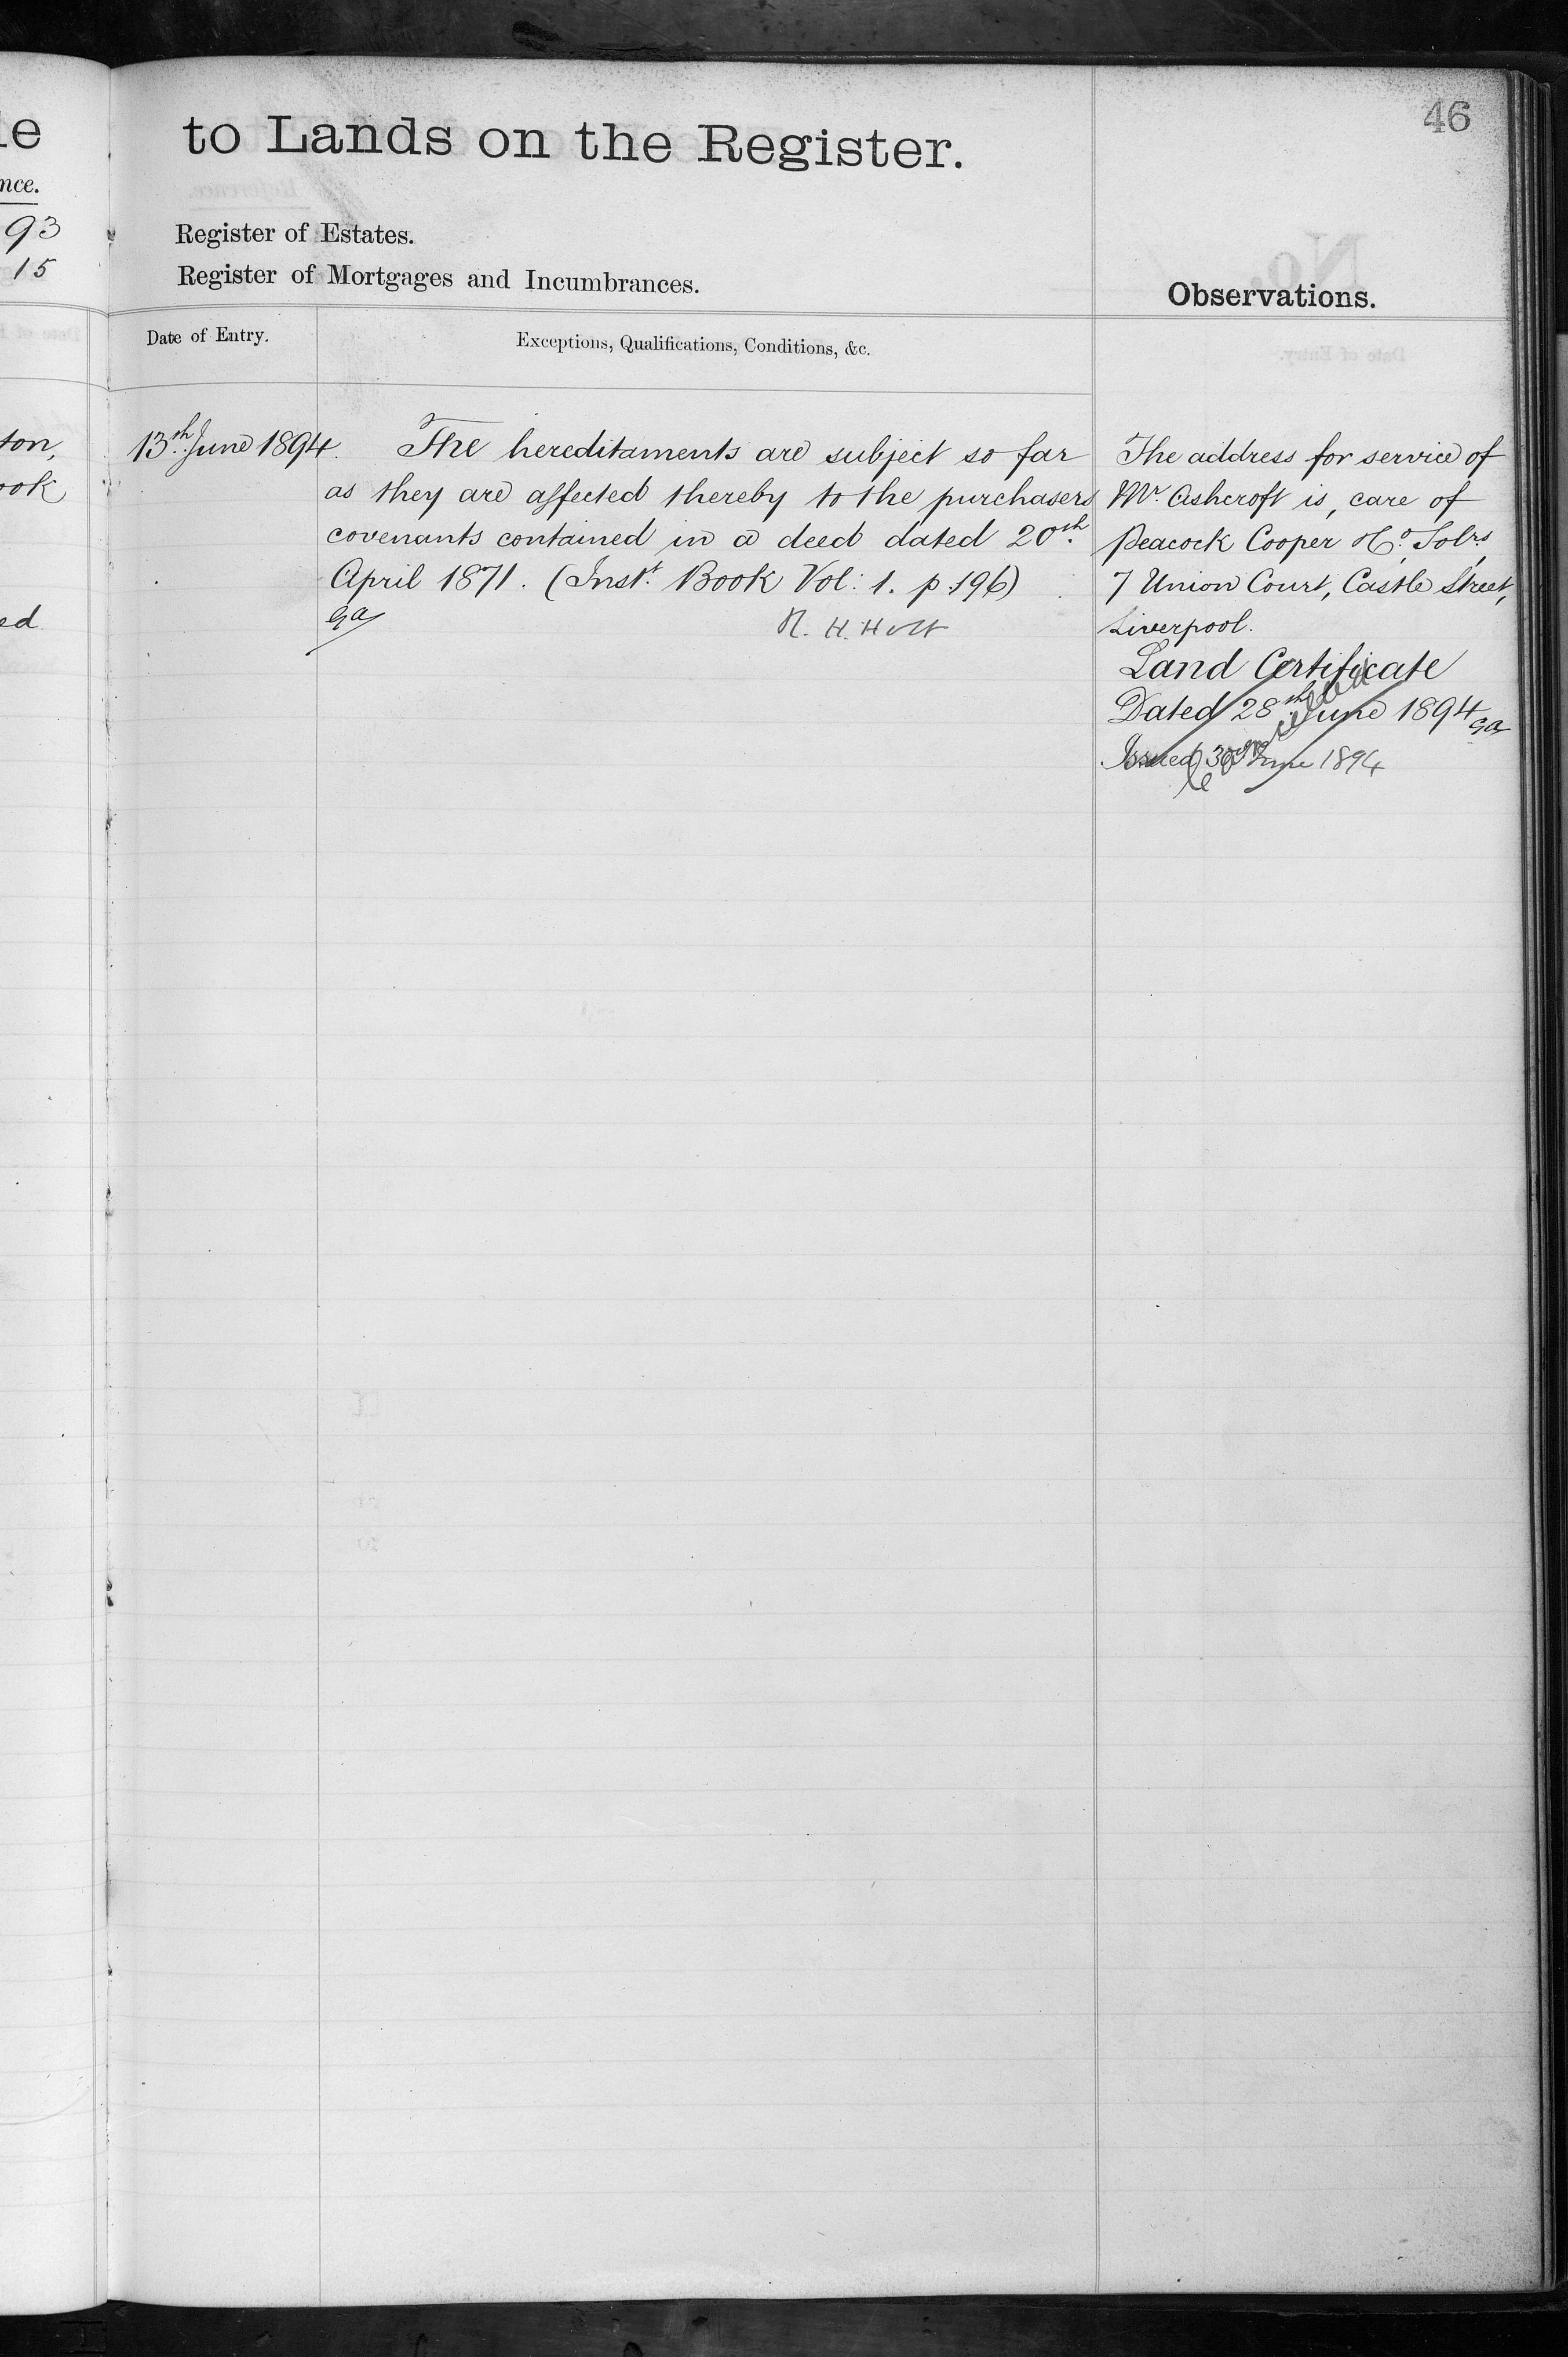 46
to Lands on the Register.
Register of Estates.
Register of Mortgages and Incumbrances.
Observations.
Date of Entry.
Exceptions, Qualifications, Conditions, &c.
13th June 1894.
The hereditaments are subject so far
as they are affected thereby to the purchasers
covenants contained in a deed dated 20th
April 1871. (Inst. Book Vol: 1. p. 196)
ga
R. H. Holt
The address for service of
Mr. Ashcroft is, care of
Peacock Cooper & Co. Solrs,
7 Union Court, Castle Street,
Liverpool.
Land Certificate
Dated 28th June 1894 ga
Issued 30th June 1894
Cancelled
nce.
93
15
ton,
ook
ed